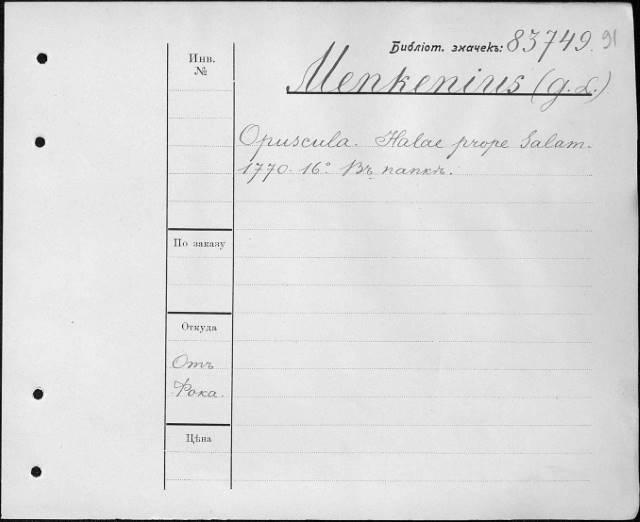 Библіот. значекъ: 83749. 91
Инв.
№
Menkenius (G. L.)
Opuscula. Halae prope Salam.
1770. 16° Въ папкѣ.
По заказу
Откуда
Отъ
Фока.
Цѣна